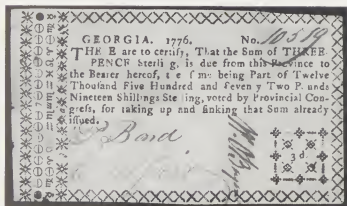 GEORGIA. 1776. No. 10519
THE E are to certify, That the Sum of THREE
PENCE Sterli g, is due from this Province to
the Bearer hereof, t e f me being Part of Twelve
Thousand Five Hundred and Seven y Two P unds
Nineteen Shillings Ste ling, voted by Provincial Con-
gress, for taking up and sinking that Sum already
issued.
Bard
3 d